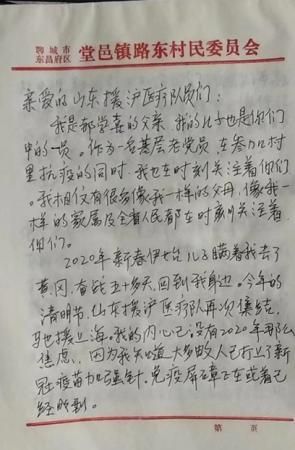 聊城市
东昌府区
堂邑镇路东村民委员会
亲爱的山东援沪医疗队员们：
我是郝学喜的父亲 我的儿子也是你们
中的一员。作为一名基层老党员 在参加村
里抗疫的同时，我也在时刻关注着你们
。我相信有很多像我一样的父母，像我一
样的家属及全省人民都在时刻关注着
你们。
2020年新春伊始儿子瞒着我去了
黄冈，奋战五十多天，回到我身边。今年的
清明节，山东援沪医疗队再次集结，
驰援上海。我的内心已没有2020年那么
焦虑，因为我知道大多数人已打上了新
冠疫苗加强针，免疫屏障正在或者已
经 到。
第 页